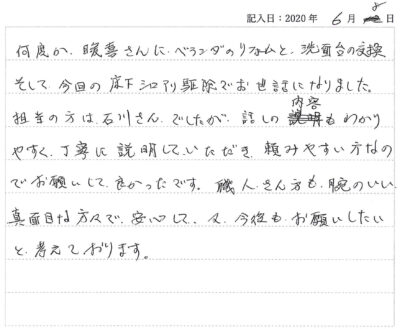 記入日：2020年 6月 2日
何度か、暖喜さんに、ベランダのリフォームと、洗面台の交換
そして、今回の床下シロアリ駆除でお世話になりました。
担当の方は、石川さん、でしたが、話しの内容もわかり
やすく、丁寧に説明して、いただき、頼みやすい方なの
でお願いして、良かったです。職人、さん方も、腕のいい、
真面目な方々で、安心して、又、今後も、お願いしたい
と、考えて、おります。